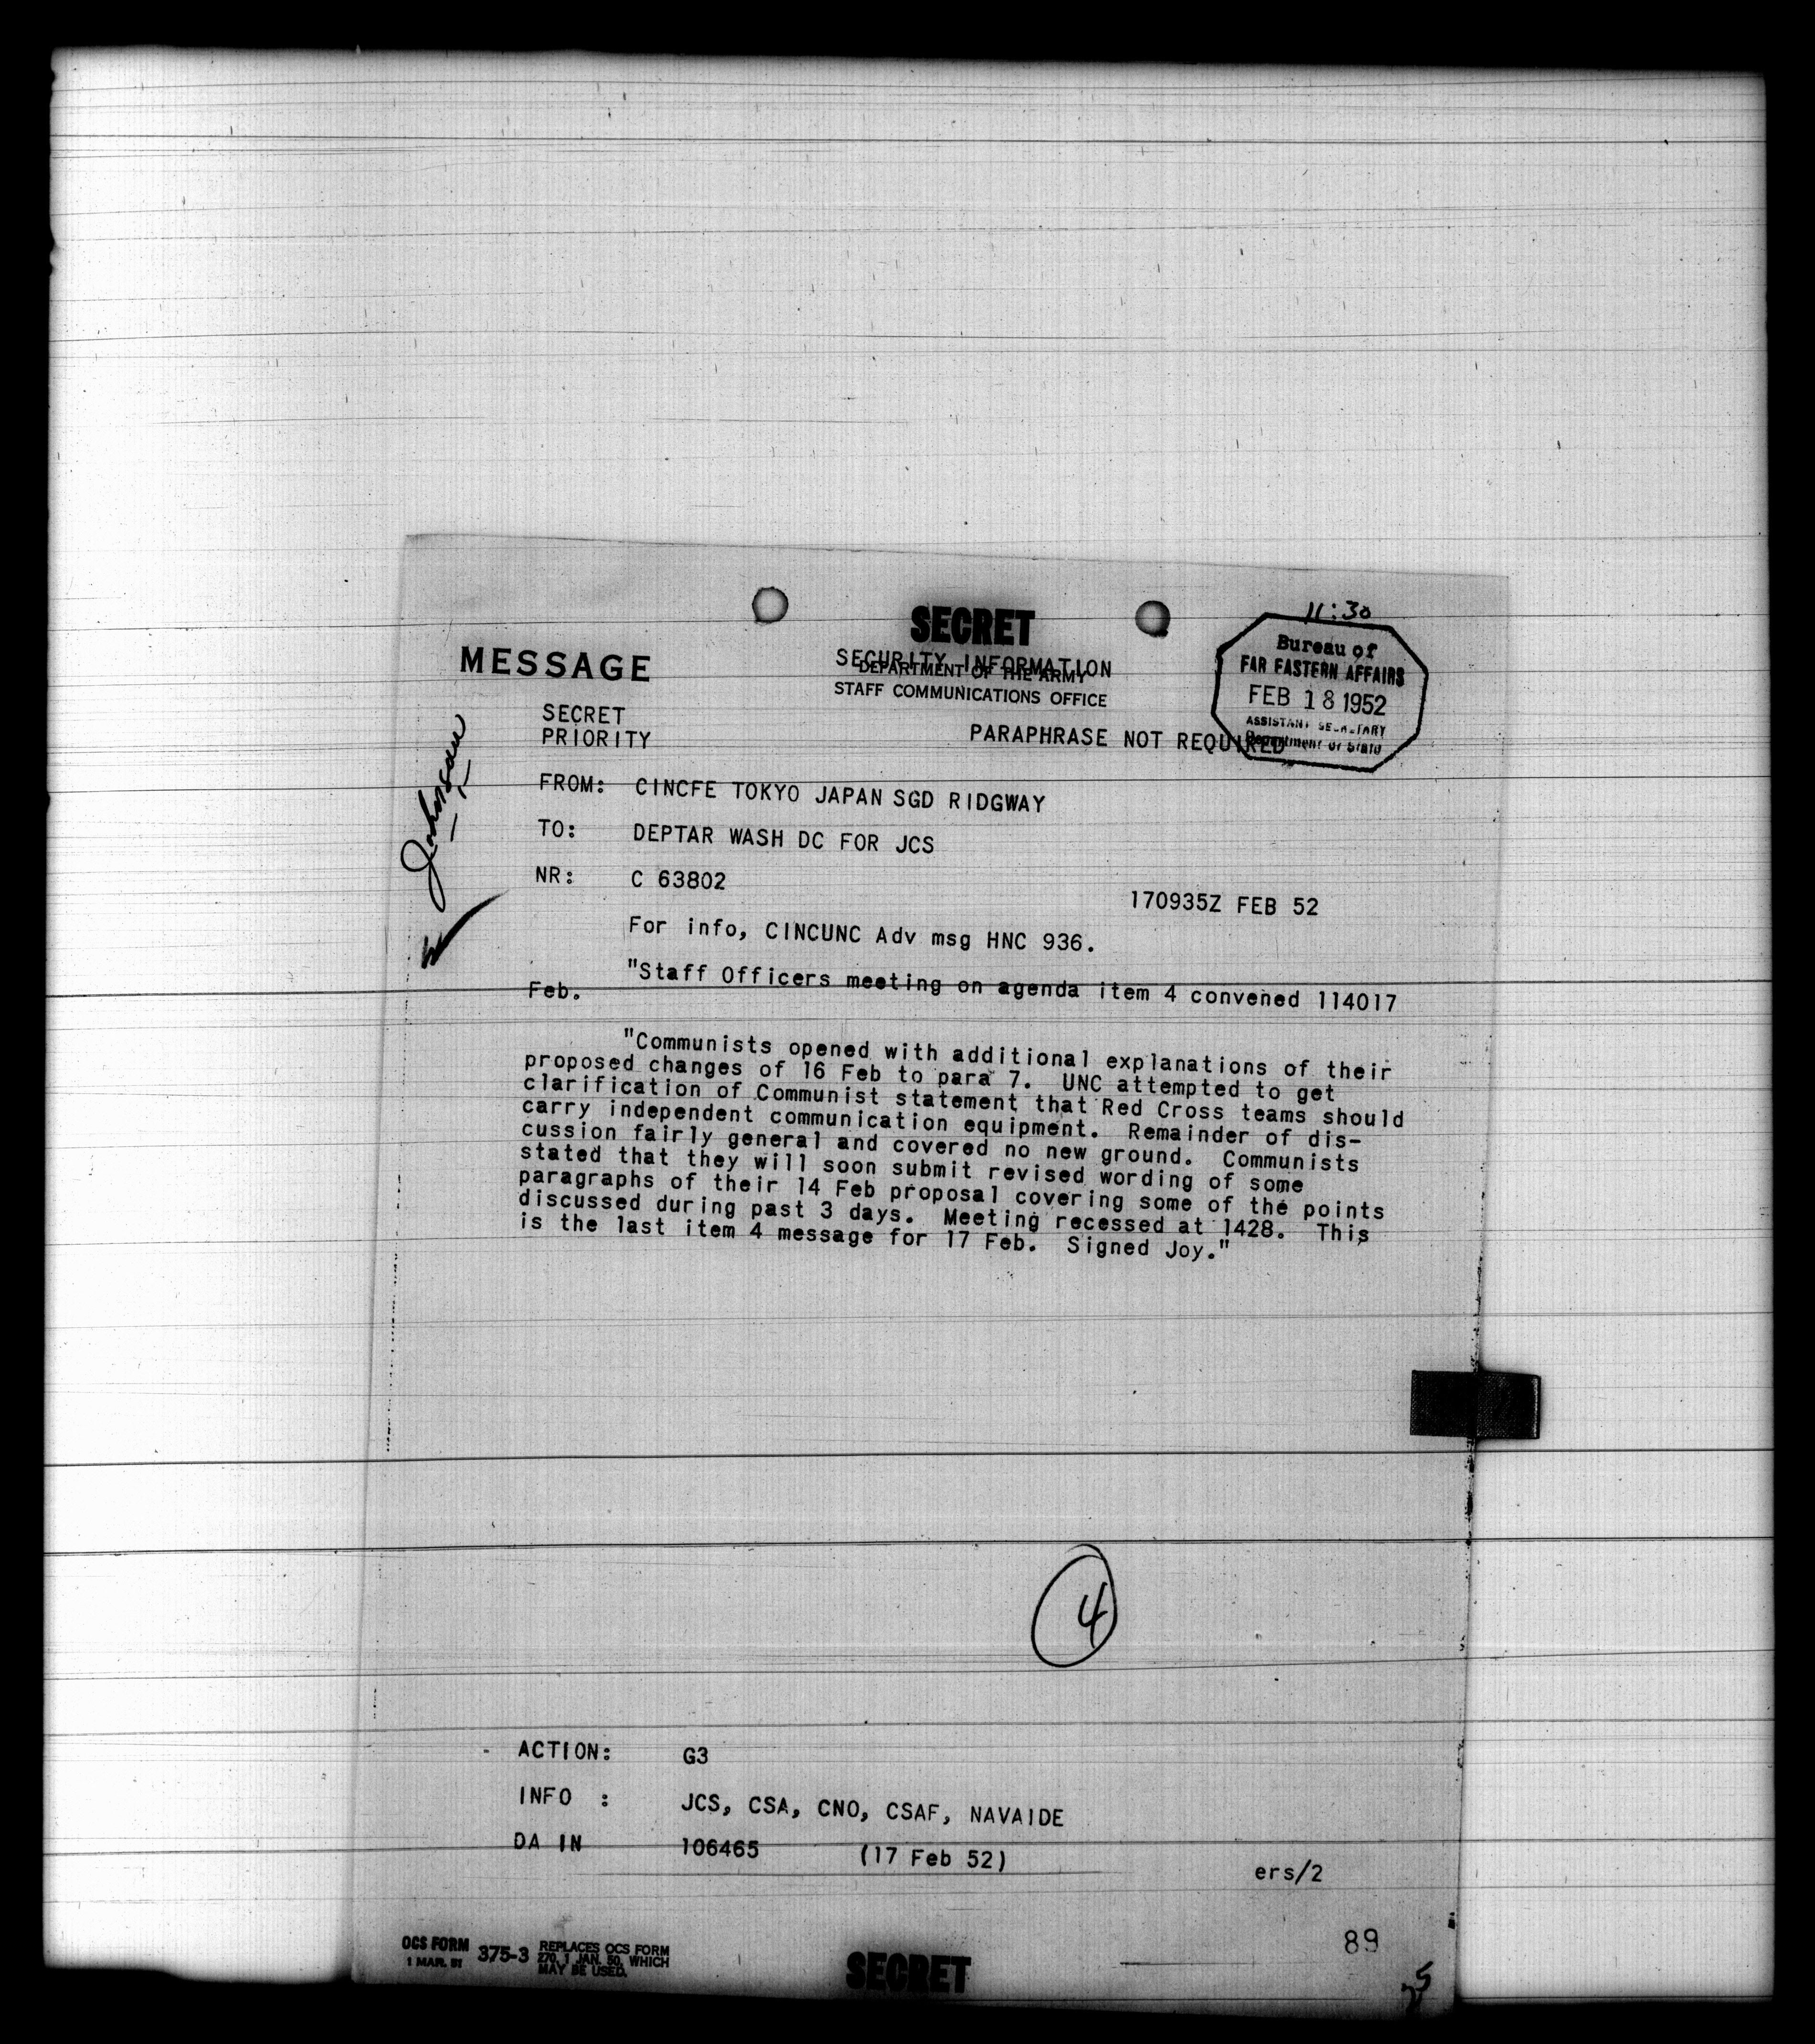 11:30
SECRET
SECURITY INFORMATION
MESSAGE
DEPARTMENT OF THE ARMY
STAFF COMMUNICATIONS OFFICE
Bureau of
FAR EASTERN AFFAIRS
FEB 18 1952
ASSISTANT SECRETARY
Department of State
SECRET
PRIORITY
PARAPHRASE NOT REQUIRED
Johnson
FROM: CINCFE TOKYO JAPAN SGD RIDGWAY
TO: DEPTAR WASH DC FOR JCS
NR: C 63802
170935Z FEB 52
For info, CINCUNC Adv msg HNC 936.
"Staff Officers meeting on agenda item 4 convened 114017
Feb.
"Communists opened with additional explanations of their
proposed changes of 16 Feb to para 7. UNC attempted to get
clarification of Communist statement that Red Cross teams should
carry independent communication equipment. Remainder of dis-
cussion fairly general and covered no new ground. Communists
stated that they will soon submit revised wording of some
paragraphs of their 14 Feb proposal covering some of the points
discussed during past 3 days. Meeting recessed at 1428. This
is the last item 4 message for 17 Feb. Signed Joy."
4
ACTION: G3
INFO : JCS, CSA, CNO, CSAF, NAVAIDE
DA IN 106465 (17 Feb 52)
ers/2
89
OCS FORM 375-3 REPLACES OCS FORM
1 MAR. 51 270, 1 JAN. 50, WHICH
MAY BE USED.
SECRET